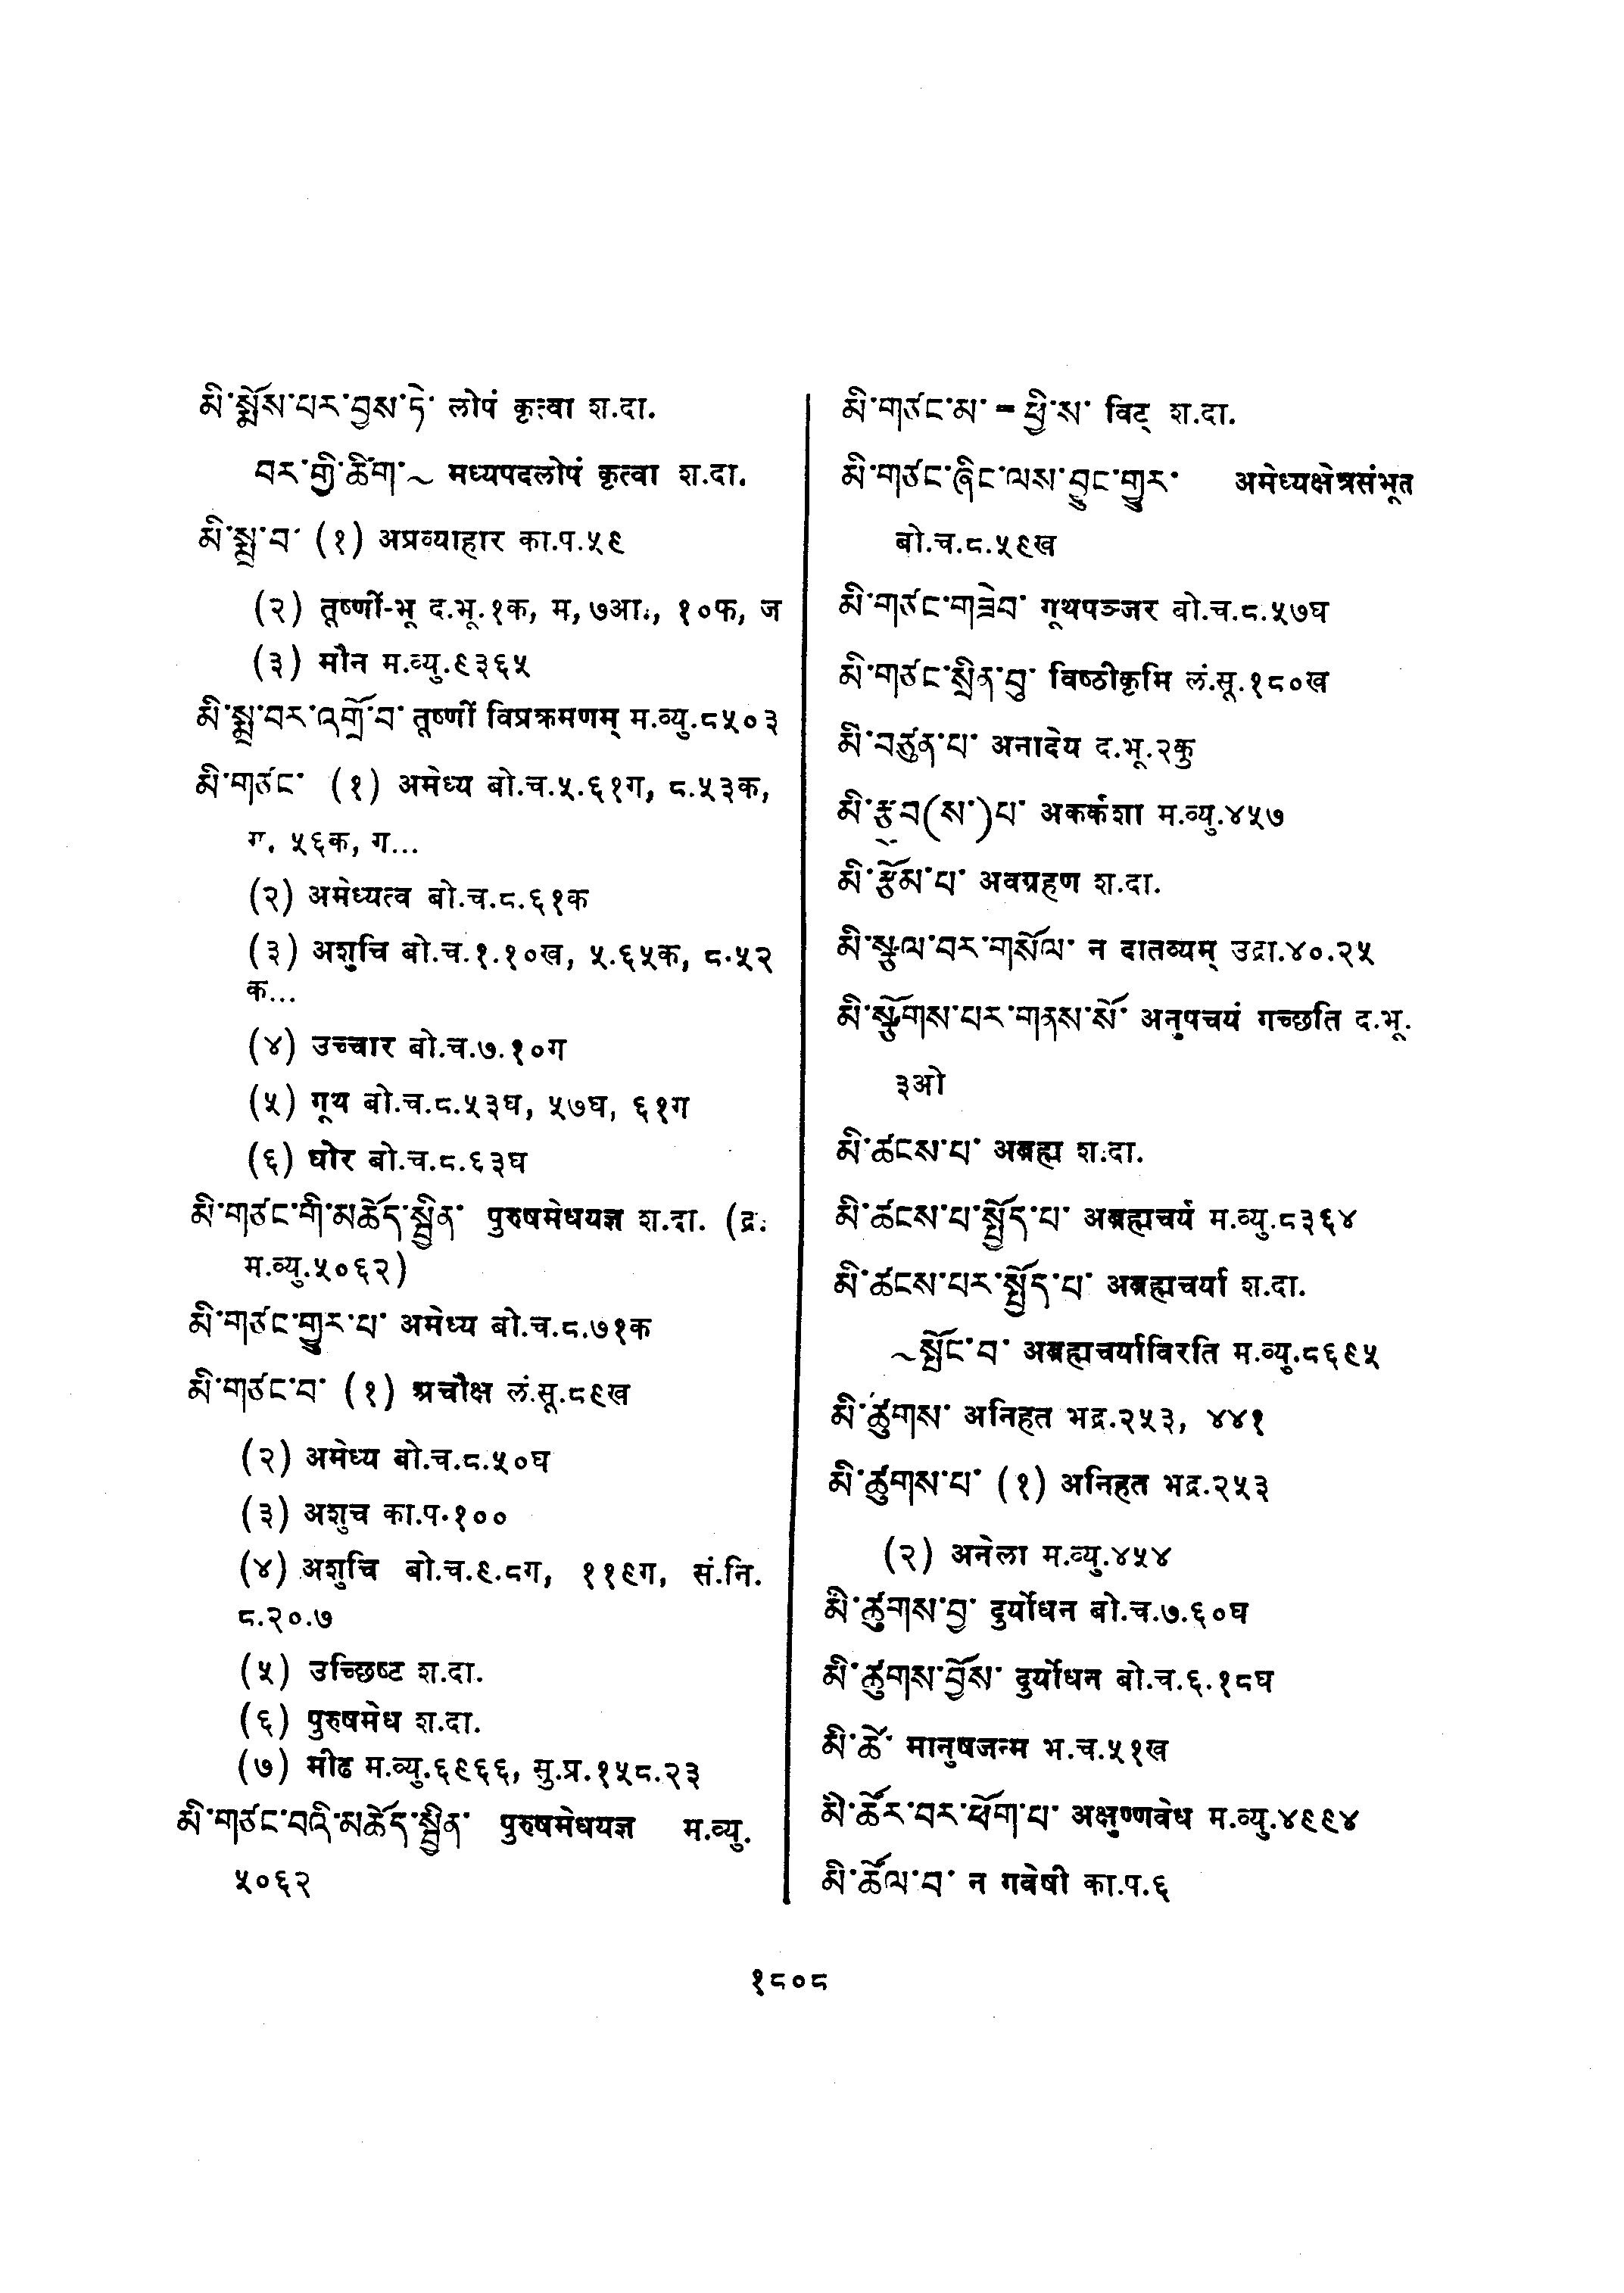 མི་སྨོས་པར་བྱས་ཏེ་ लोपं कृत्वा श.दा.
བར་གྱི་ཚིག་~ मध्यपदलोपं कृत्वा श.दा.
མི་སྨྲ་བ་ (१) अप्रव्याहार का.प.५९
(२) तूष्णीं-भू द.भू.१क, म, ७आ., १०फ, ज
(३) मौन म.व्यु.९३६५
མི་སྨྲ་བར་འགྲོ་བ་ तूष्णीं विप्रक्रमणम् म.व्यु.८५०३
མི་གཙང་ (१) अमेध्य बो.च.५.६१ग, ८.५३क,
५६क, ग...
(२) अमेध्यत्व बो.च.८.६१क
(३) अशुचि बो.च.१.१०ख, ५.६५क, ८.५२
क...
(४) उच्चार बो.च.७.१०ग
(५) गूथ बो.च.८.५३घ, ५७घ, ६१ग
(६) घोर बो.च.८.६३घ
མི་གཙང་གི་མཆོད་སྦྱིན་ पुरुषमेधयज्ञ श.दा. (द्र.
म.व्यु.५०६२)
མི་གཙང་གྱུར་པ་ अमेध्य बो.च.८.७१क
མི་གཙང་བ་ (१) अचौक्ष लं.सू.८९ख
(२) अमेध्य बो.च.८.५०घ
(३) अशुच का.प.१००
(४) अशुचि बो.च.९.८ग, ११९ग, सं.नि.
८.२०.७
(५) उच्छिष्ट श.दा.
(६) पुरुषमेध श.दा.
(७) मीढ म.व्यु.६९६६, सु.प्र.१५८.२३
མི་གཙང་བའི་མཆོད་སྦྱིན་ पुरुषमेधयज्ञ म.व्यु.
५०६२
མི་གཙང་མ་ = ཕྱི་ས་ विट् श.दा.
མི་གཙང་ཞིང་ལས་བྱུང་གྱུར་ अमेध्यक्षेत्रसंभूत
बो.च.८.५९ख
མི་གཙང་གཟེབ་ गूथपञ्जर बो.च.८.५७घ
མི་གཙང་སྲིན་བུ་ विष्ठीकृमि लं.सू.१८०ख
མི་བཙུན་པ་ अनादेय द.भू.२कु
མི་རྩུབ(ས་)པ་ अकर्कशा म.व्यु.४५७
མི་རྩོམ་པ་ अवग्रहण श.दा.
མི་སྩལ་བར་གསོལ་ न दातव्यम् उद्रा.४०.२५
མི་སྩོགས་པར་གནས་སོ་ अनुपचयं गच्छति द.भू.
३ओ
མི་ཚངས་པ་ अब्रह्म श.दा.
མི་ཚངས་པ་སྤྱོད་པ་ अब्रह्मचर्य म.व्यु.८३६४
མི་ཚངས་པར་སྤྱོད་པ་ अब्रह्मचर्या श.दा.
~སྤོང་བ་ अब्रह्मचर्याविरति म.व्यु.८६९५
མི་ཚུགས་ अनिहत भद्र.२५३, ४४१
མི་ཚུགས་པ་ (१) अनिहत भद्र.२५३
(२) अनेला म.व्यु.४५४
མི་ཚུགས་བྱ་ दुर्योधन बो.च.७.६०घ
མི་ཚུགས་བྱོས་ दुर्योधन बो.च.६.१८घ
མི་ཚེ་ मानुषजन्म भ.च.५१ख
མི་ཚོར་བར་ཕོག་པ་ अक्षुण्णवेध म.व्यु.४९९४
མི་ཚོལ་བ་ न गवेषी का.प.६
१८०८